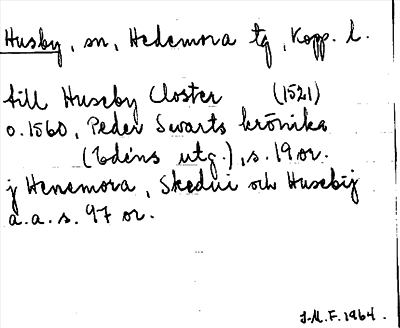 Husby, sn, Hedemora tg, Kopp. l.
till Huseby Closter (1521)
o. 1560, Peder Swarts krönika
(Edéns utg.), s. 19 or.
j Henemora, Skedui och Husebij
a.a. s. 97 or.
J.M.F. 1964.